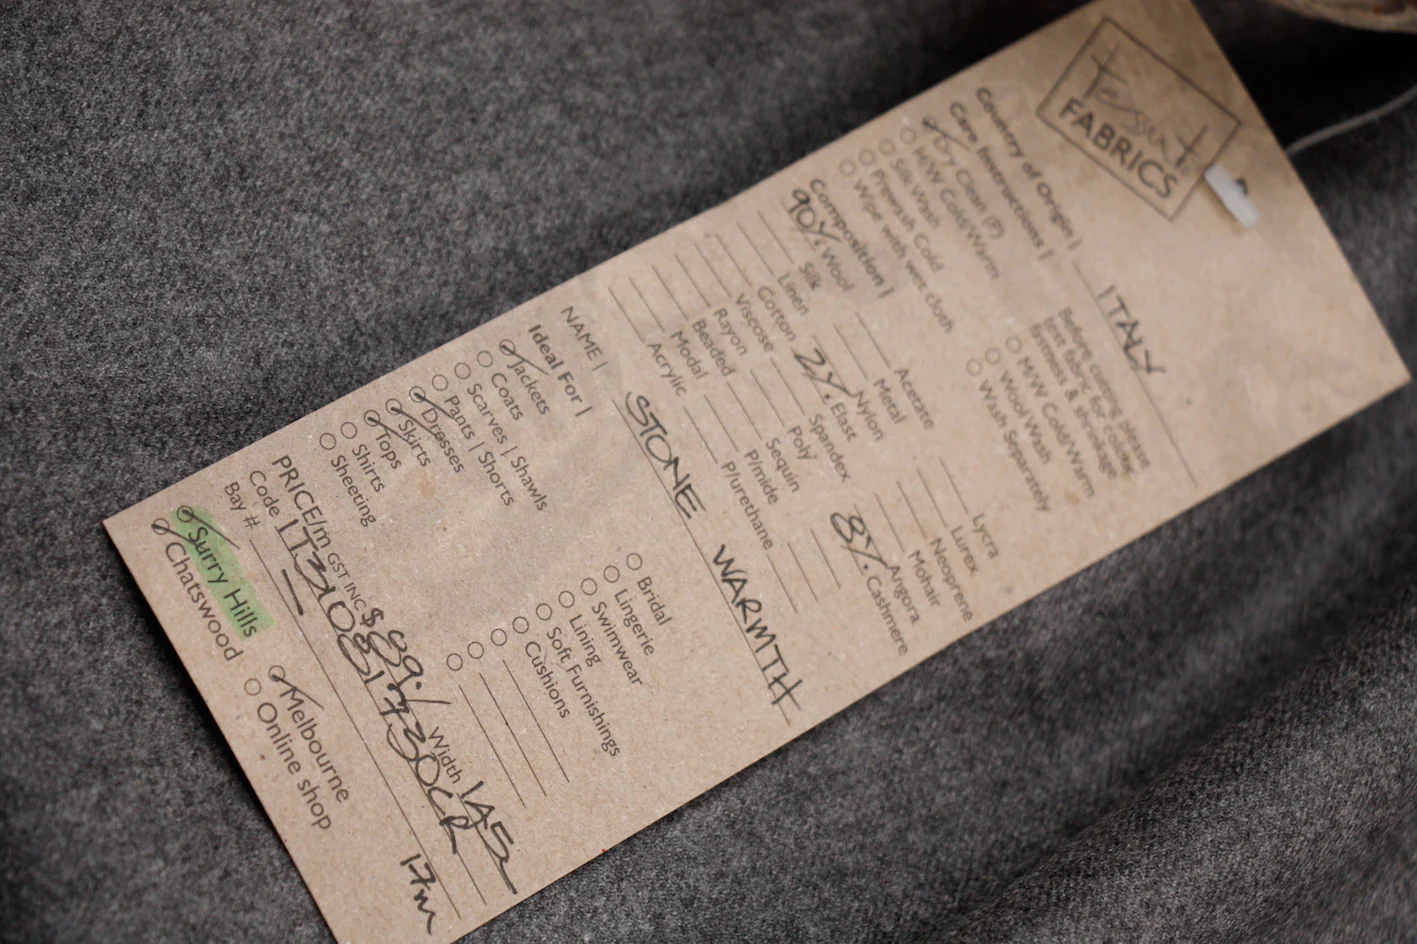 Tessuti
FABRICS
Country of Origin | ITALY
Care Instructions |
Dry Clean (P)
M/W Cold/Warm
Silk Wash
Prewash Cold
Wipe with wet cloth
Before cutting please
test fabric for colour
fastness & shrinkage
M/W Cold/Warm
Wool Wash
Wash Separately
Composition |
90%. Wool
Silk
Linen
Cotton
Viscose
Rayon
Beaded
Modal
Acrylic
Acetate
Metal
Nylon
2%. Elast
Spandex
Poly
Sequin
P/mide
P/urethane
Lycra
Lurex
Neoprene
Mohair
Angora
8%. Cashmere
NAME | STONE WARMTH
Ideal For |
Jackets
Coats
Scarves | Shawls
Pants | Shorts
Dresses
Skirts
Tops
Shirts
Sheeting
Bridal
Lingerie
Swimwear
Lining
Soft Furnishings
Cushions
PRICE/m GST INC $ 89./ Width 145
Code
Bay #
17m
Surry Hills
Chatswood
Melbourne
Online shop